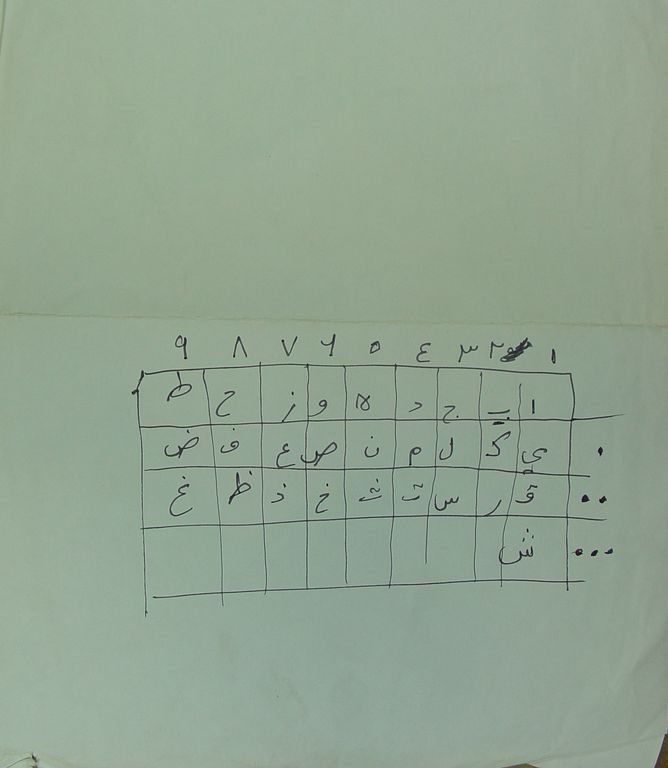 ١ ٢ ٣ ٤ ٥ ٦ ٧ ٨ ٩
ا ب ج د ه و ز ح ط
٠ ي ك ل م ن ص ع ف ض
٠٠ ق ر س ت ث خ ذ ظ غ
٠٠٠ ش